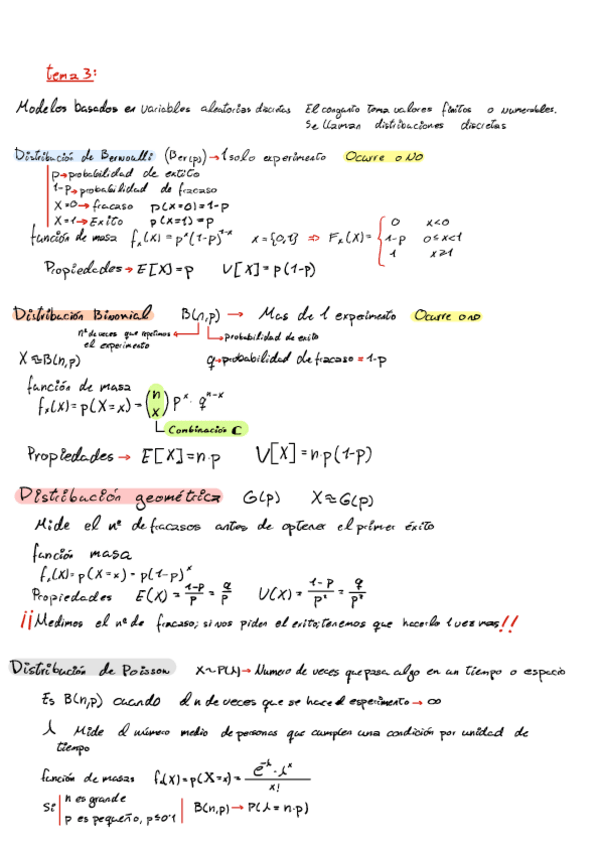 tema 3:
Modelos basados en variables aleatorias discretas El conjunto toma valores finitos o numerables.
Se llaman distribuciones discretas
Distribución de Bernoulli (Ber(p)) → 1 solo experimento Ocurre o NO
p → probabilidad de exito
1-p → probabilidad de fracaso
X=0 → fracaso p(X=0)=1-p
X=1 → Exito p(X=1)=p
función de masa fₓ(X) = pˣ(1-p)¹⁻ˣ x={0,1} ⇒ Fₓ(X)= { 0 x<0
1-p 0≤x<1
1 x≥1
Propiedades → E[X]=p V[X]=p(1-p)
Distribución Binomial B(n,p) → Mas de 1 experimento Ocurre o no
nº de veces que repetimos el experimento
probabilidad de exito
X≈B(n,p) q → probabilidad de fracaso = 1-p
función de masa
fₓ(X)=p(X=x) = (n x) pˣ · qⁿ⁻ˣ
Combinación C
Propiedades → E[X]=n·p V[X]=n·p(1-p)
Distribución geométrica G(p) X≈G(p)
Mide el nº de fracasos antes de optener el primer éxito
función masa
fₓ(X)=p(X=x)=p(1-p)ˣ
Propiedades E(X) = 1-p/p = q/p V(X) = 1-p/p² = q/p²
¡¡Medimos el nº de fracaso; si nos piden el exito; tenemos que hacerlo 1 vez mas!!
Distribución de Poisson X~P(λ) → Numero de veces que pasa algo en un tiempo o espacio
Es B(n,p) cuando el n de veces que se hace el experimento → ∞
λ Mide el número medio de personas que cumplen una condición por unidad de
tiempo
función de masas fₓ(X)=p(X=x)= e^-λ · λˣ / x!
Si n es grande
p es pequeño, p≤0'1
B(n,p) → P(λ = n·p)